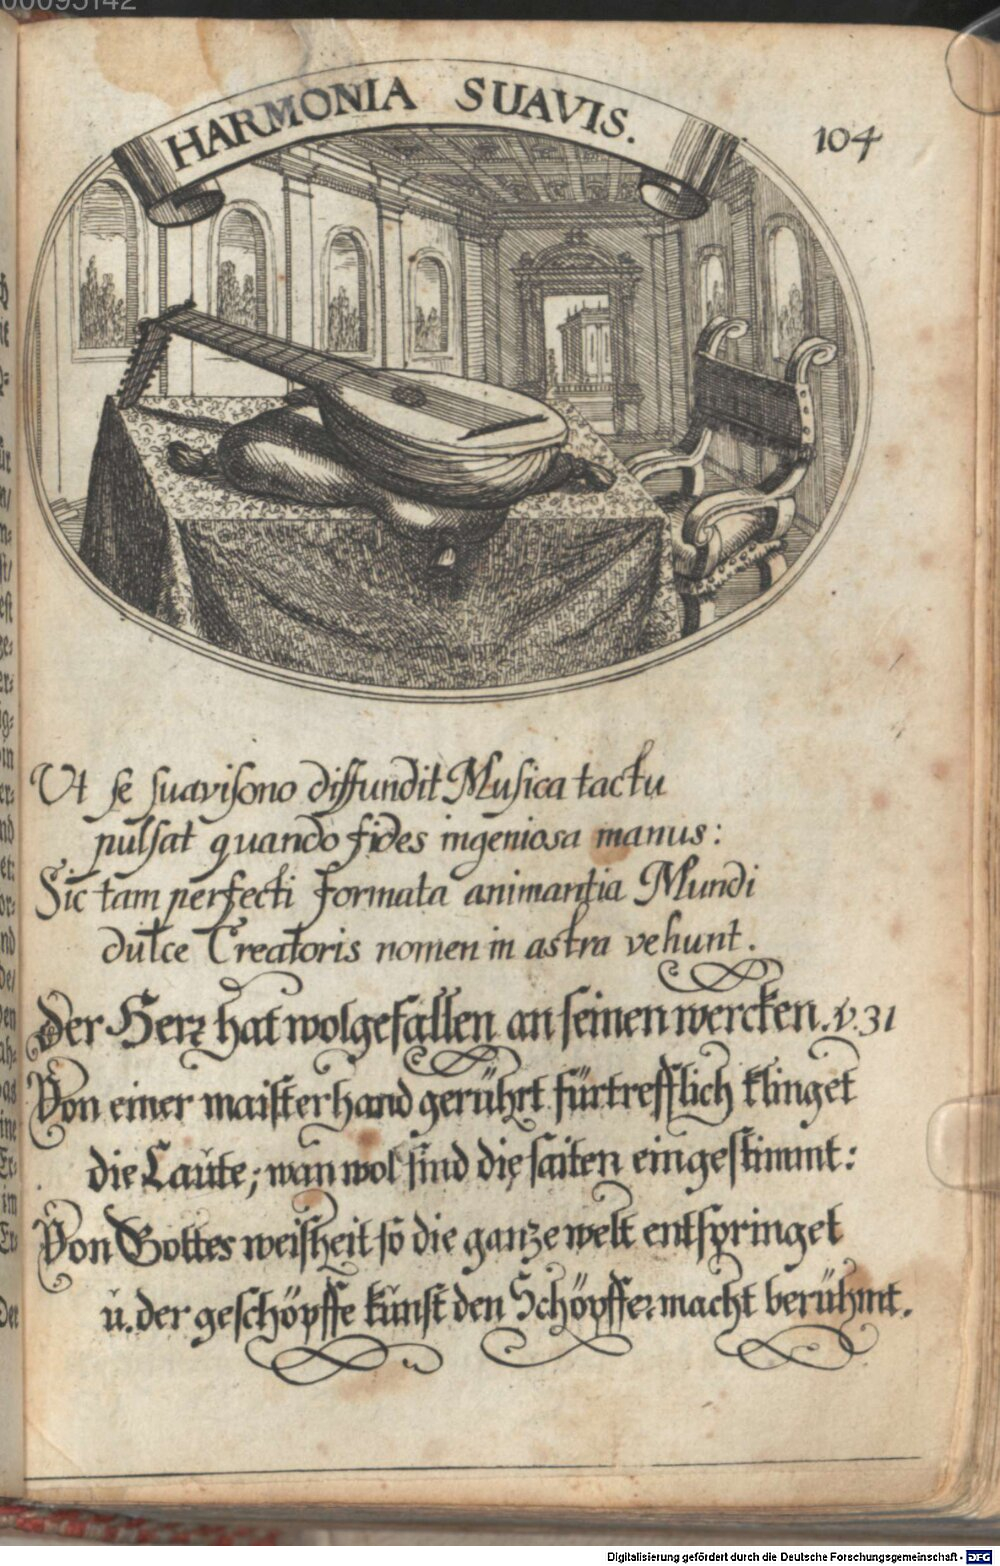 00095142
HARMONIA SUAVIS.
104
Ut se suavisono diffundit Musica tactu
pulsat quando fides ingeniosa manus:
Sic tam perfecti formata animantia Mundi
dulce Creatoris nomen in astra vehunt.
Der Herr hat wolgefallen an seinen wercken. v. 31
Von einer maisterhand gerührt fürtrefflich klinget
die Laute; wan wol sind die saiten eingestimmt:
Von Gottes weisheit so die ganze welt entspringet
u. der geschöpffe kunst den Schöpffer macht berühmt.
Digitalisierung gefördert durch die Deutsche Forschungsgemeinschaft - DFG